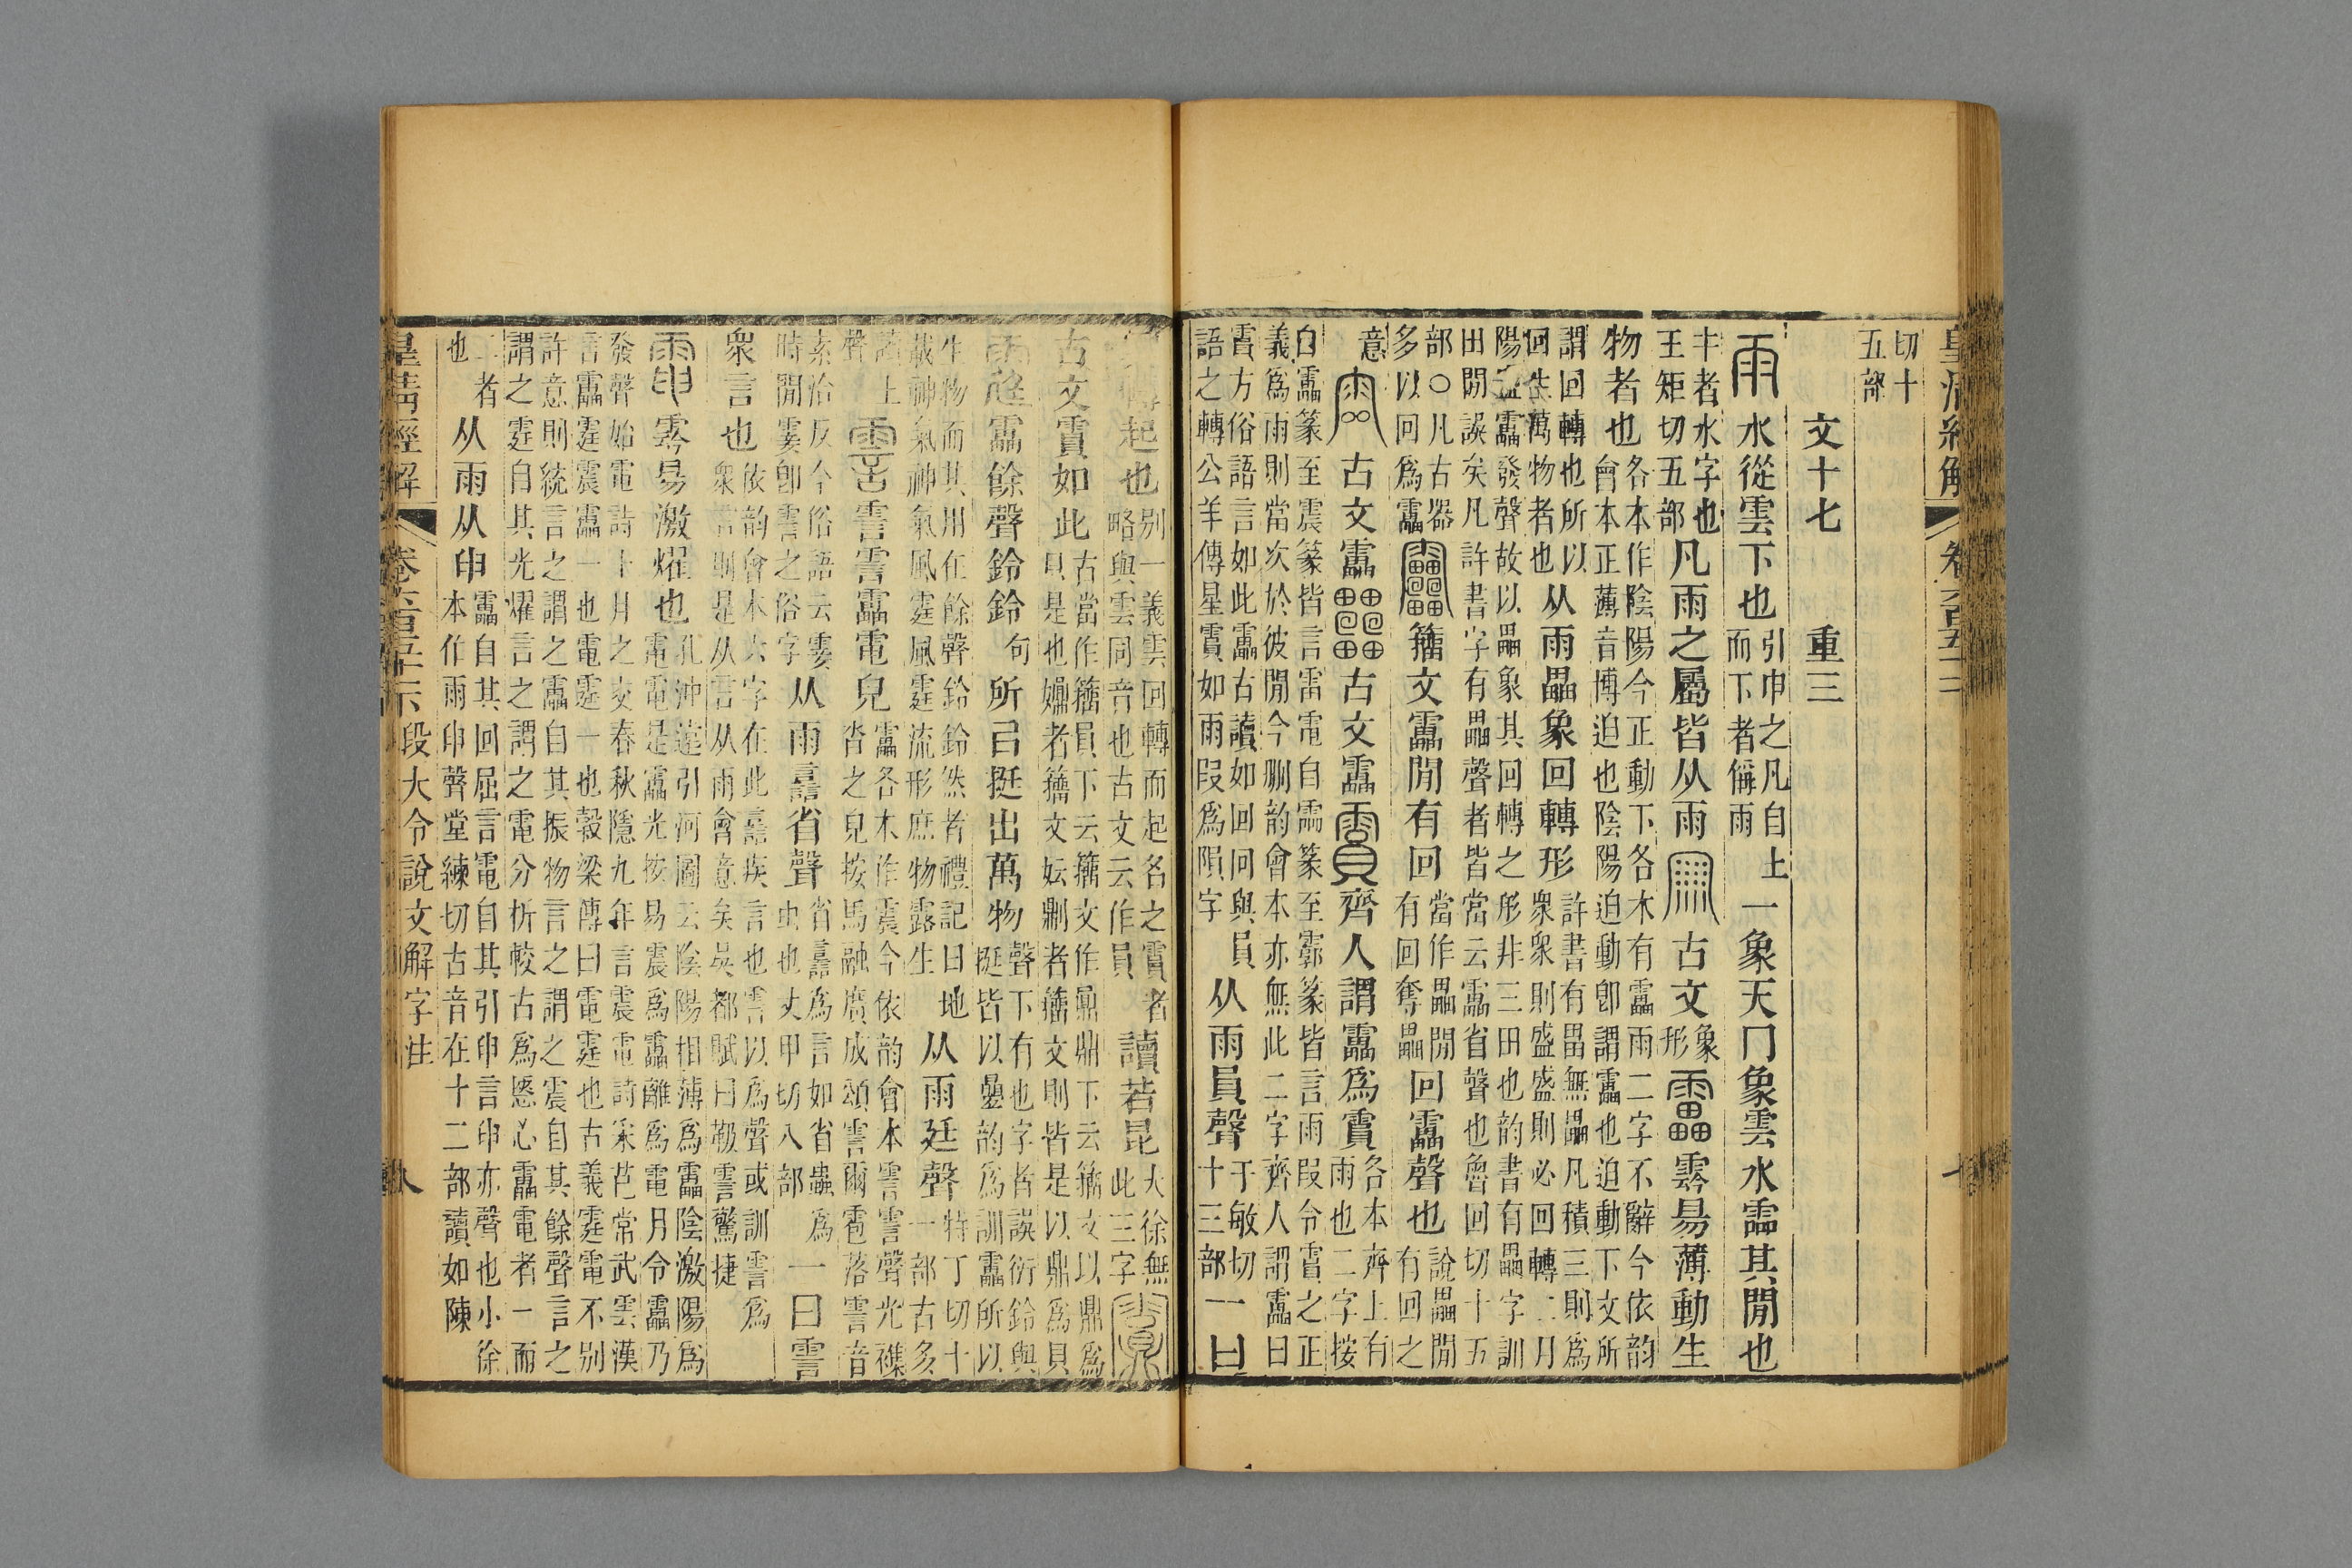 皇清經解
切十五部
文十七 重三
雨 水從雲下也 引申之凡自上而下者偁雨 一象天冂象雲水霝其閒也
丰者水字也王矩切五部 凡雨之屬皆从雨 古文 象形 靁 霒昜薄動生
物者也 各本作陰陽今正動下各本有靁雨二字不辭今依韵會本正薄音博迫也陰陽迫動卽謂靁也迫動下文所
謂回轉也所以回生萬物者也 从雨畾象回轉形 許書有畕無畾凡積三則爲眾眾則盛盛則必回轉二月
陽盛靁發聲故以畾象其回轉之形非三田也韵書有畾字訓田閒誤矣凡許書字有畾聲者皆當云靁省聲也魯回切十五
部○凡古器多以回爲靁 籒文靁閒有回 當作畾閒有回奪畾 回靁聲也 說畾閒有回之
意 古文靁 古文靁 霣 齊人謂靁爲霣 各本齊上有雨也二字按
自靁篆至震篆皆言雷電自霝篆至霩篆皆言雨叚令霣之正義爲雨則當次於彼閒今刪韵會本亦無此二字齊人謂靁曰
霣方俗語言如此靁古讀如回回與員語之轉公羊傳星霣如雨叚爲隕字 从雨員聲 于敏切十三部 一曰
轉起也 別一義雲回轉而起名之霣者略與雲同音也古文云作員 讀若昆 大徐無此三字
古文霣如此 古當作籒員下云籒文作鼎鼎下云籒文以鼎爲貝是也者籒文妘者籒文則皆是以鼎爲貝
霆 靁餘聲鈴鈴 句 所㠯挺出萬物 聲下有也字者誤衍鈴與挺皆以曡韵爲訓靁所以
生物而其用在餘聲鈴鈴然者禮記曰地載神氣神氣風霆風霆流形庶物露生 从雨廷聲 特丁切十一部古多
讀上聲 霅 霅霅靁電皃 靁各本作震今依韵會本霅霅聲光襍沓之皃按馬融廣成頌霅爾雹落霅音
素洽反今俗語云霎時閒霎卽霅之俗字 从雨譶省聲 省譶爲言如省蟲爲虫也丈甲切八部 一曰霅
眾言也 依韵會本六字在此譶疾言也霅以爲聲或訓霅爲眾言常則是从言从雨會意矣吳都賦曰靸霅驚捷
電 霒昜激燿也 孔沖遠引河圖云陰陽相薄爲靁陰激陽爲電電是靁光按易震爲靁離爲電月令靁乃
發聲始電詩十月之交春秋隱九年言震電詩采芑常武雲漢言靁霆震靁一也電霆一也穀梁傳曰電霆也古義霆電不別
許意則統言之謂之靁自其振物言之謂之震自其餘聲言之謂之霆自其光燿言之謂之電分析較古爲愨心靁電者一而
二者也 从雨从申 靁自其回屈言電自其引申言申亦聲也小徐本作雨申聲堂練切古音在十二部讀如陳
皇清經解 卷六百五十一下 段大令說文解字注 八